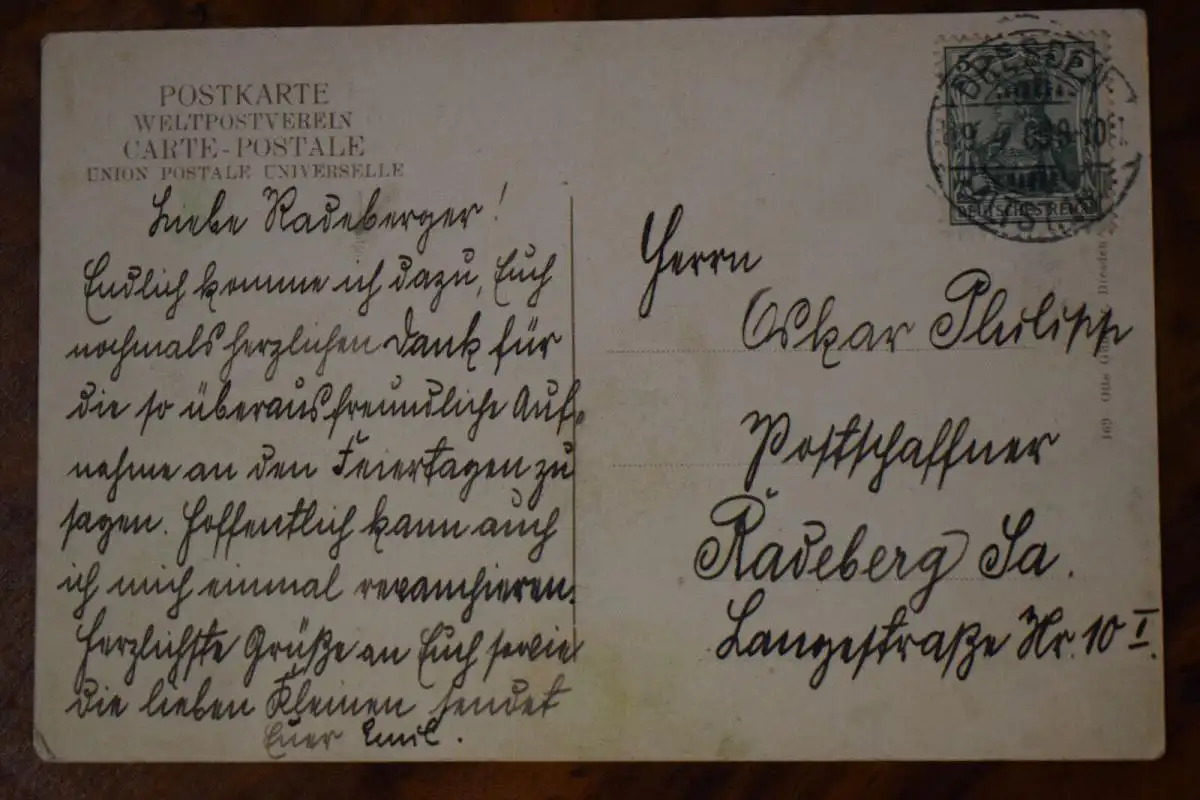 POSTKARTE
WELTPOSTVEREIN
CARTE-POSTALE
UNION POSTALE UNIVERSELLE
Liebe Radeberger!
Endlich komme ich dazu, Euch
nochmals herzlichen Dank für
die so überaus freundliche Auf-
nahme an den Feiertagen zu
sagen. Hoffentlich kann auch
ich mich einmal revanchieren.
Herzlichste Grüße an Euch sowie
die lieben Kleinen sendet
Euer Emil.
DRESDEN
DEUTSCHES REICH
Herrn
Oskar Philipp
Postschaffner
Radeberg Sa.
Langestraße Nr. 10 I.
169 Otto Dresden